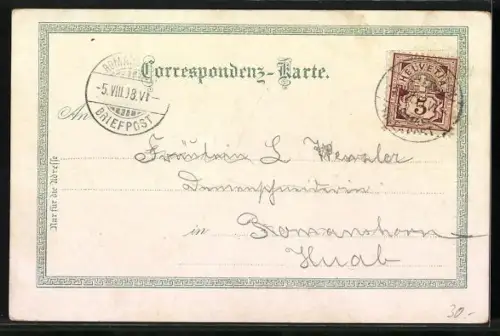 Correspondenz-Karte.
HELVETIA
5
-5.VIII.98.VI-
BRIEFPOST
An
Fräulein L Wenzler
Damenschneiderin
in Romanshorn
Huab
Nur für die Adresse
30.-